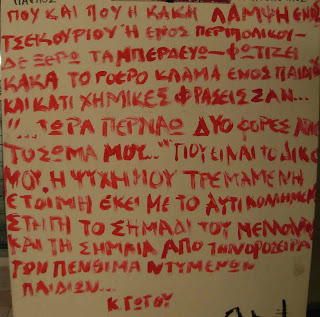 ΠΟΥ ΚΑΙ ΠΟΥ Η ΚΑΚΗ ΛΑΜΨΗ ΕΝΟΣ
ΤΣΕΚΟΥΡΙΟΥ Ή ΕΝΟΣ ΠΕΡΙΠΟΛΙΚΟΥ-
ΔΕ ΞΕΡΩ ΤΑ ΜΠΕΡΔΕΥΩ-ΦΩΤΙΖΕΙ
ΚΑΚΑ ΤΟ ΓΟΕΡΟ ΚΛΑΜΑ ΕΝΟΣ ΠΑΙΔΙΟΥ
ΚΑΙ ΚΑΤΙ ΧΗΜΙΚΕΣ ΦΡΑΣΕΙΣ ΣΑΝ...
"...ΤΩΡΑ ΠΕΡΝΑΩ ΔΥΟ ΦΟΡΕΣ ΑΠΟ
ΤΟ ΣΩΜΑ ΜΟΥ..." ΠΟΥ ΕΙΝΑΙ ΤΟ ΔΙΚΟ
ΜΟΥ. Η ΨΥΧΗ ΜΟΥ ΤΡΕΜΑΜΕΝΗ
ΕΤΟΙΜΗ ΕΚΕΙ ΜΕ ΤΟ ΑΥΤΙ ΚΟΛΛΗΜΕΝΟ
ΣΤΗ ΓΗ ΤΟ ΣΗΜΑΔΙ ΤΟΥ ΜΕΛΛΟΝΤΟΣ
ΚΑΙ ΤΗ ΣΗΜΑΙΑ ΑΠΟ ΤΗΝ ΟΡΟΣΕΙΡΑ
ΤΩΝ ΠΕΝΘΙΜΑ ΝΤΥΜΕΝΩΝ
ΠΑΙΔΙΩΝ...
Κ. ΓΩΓΟΥ